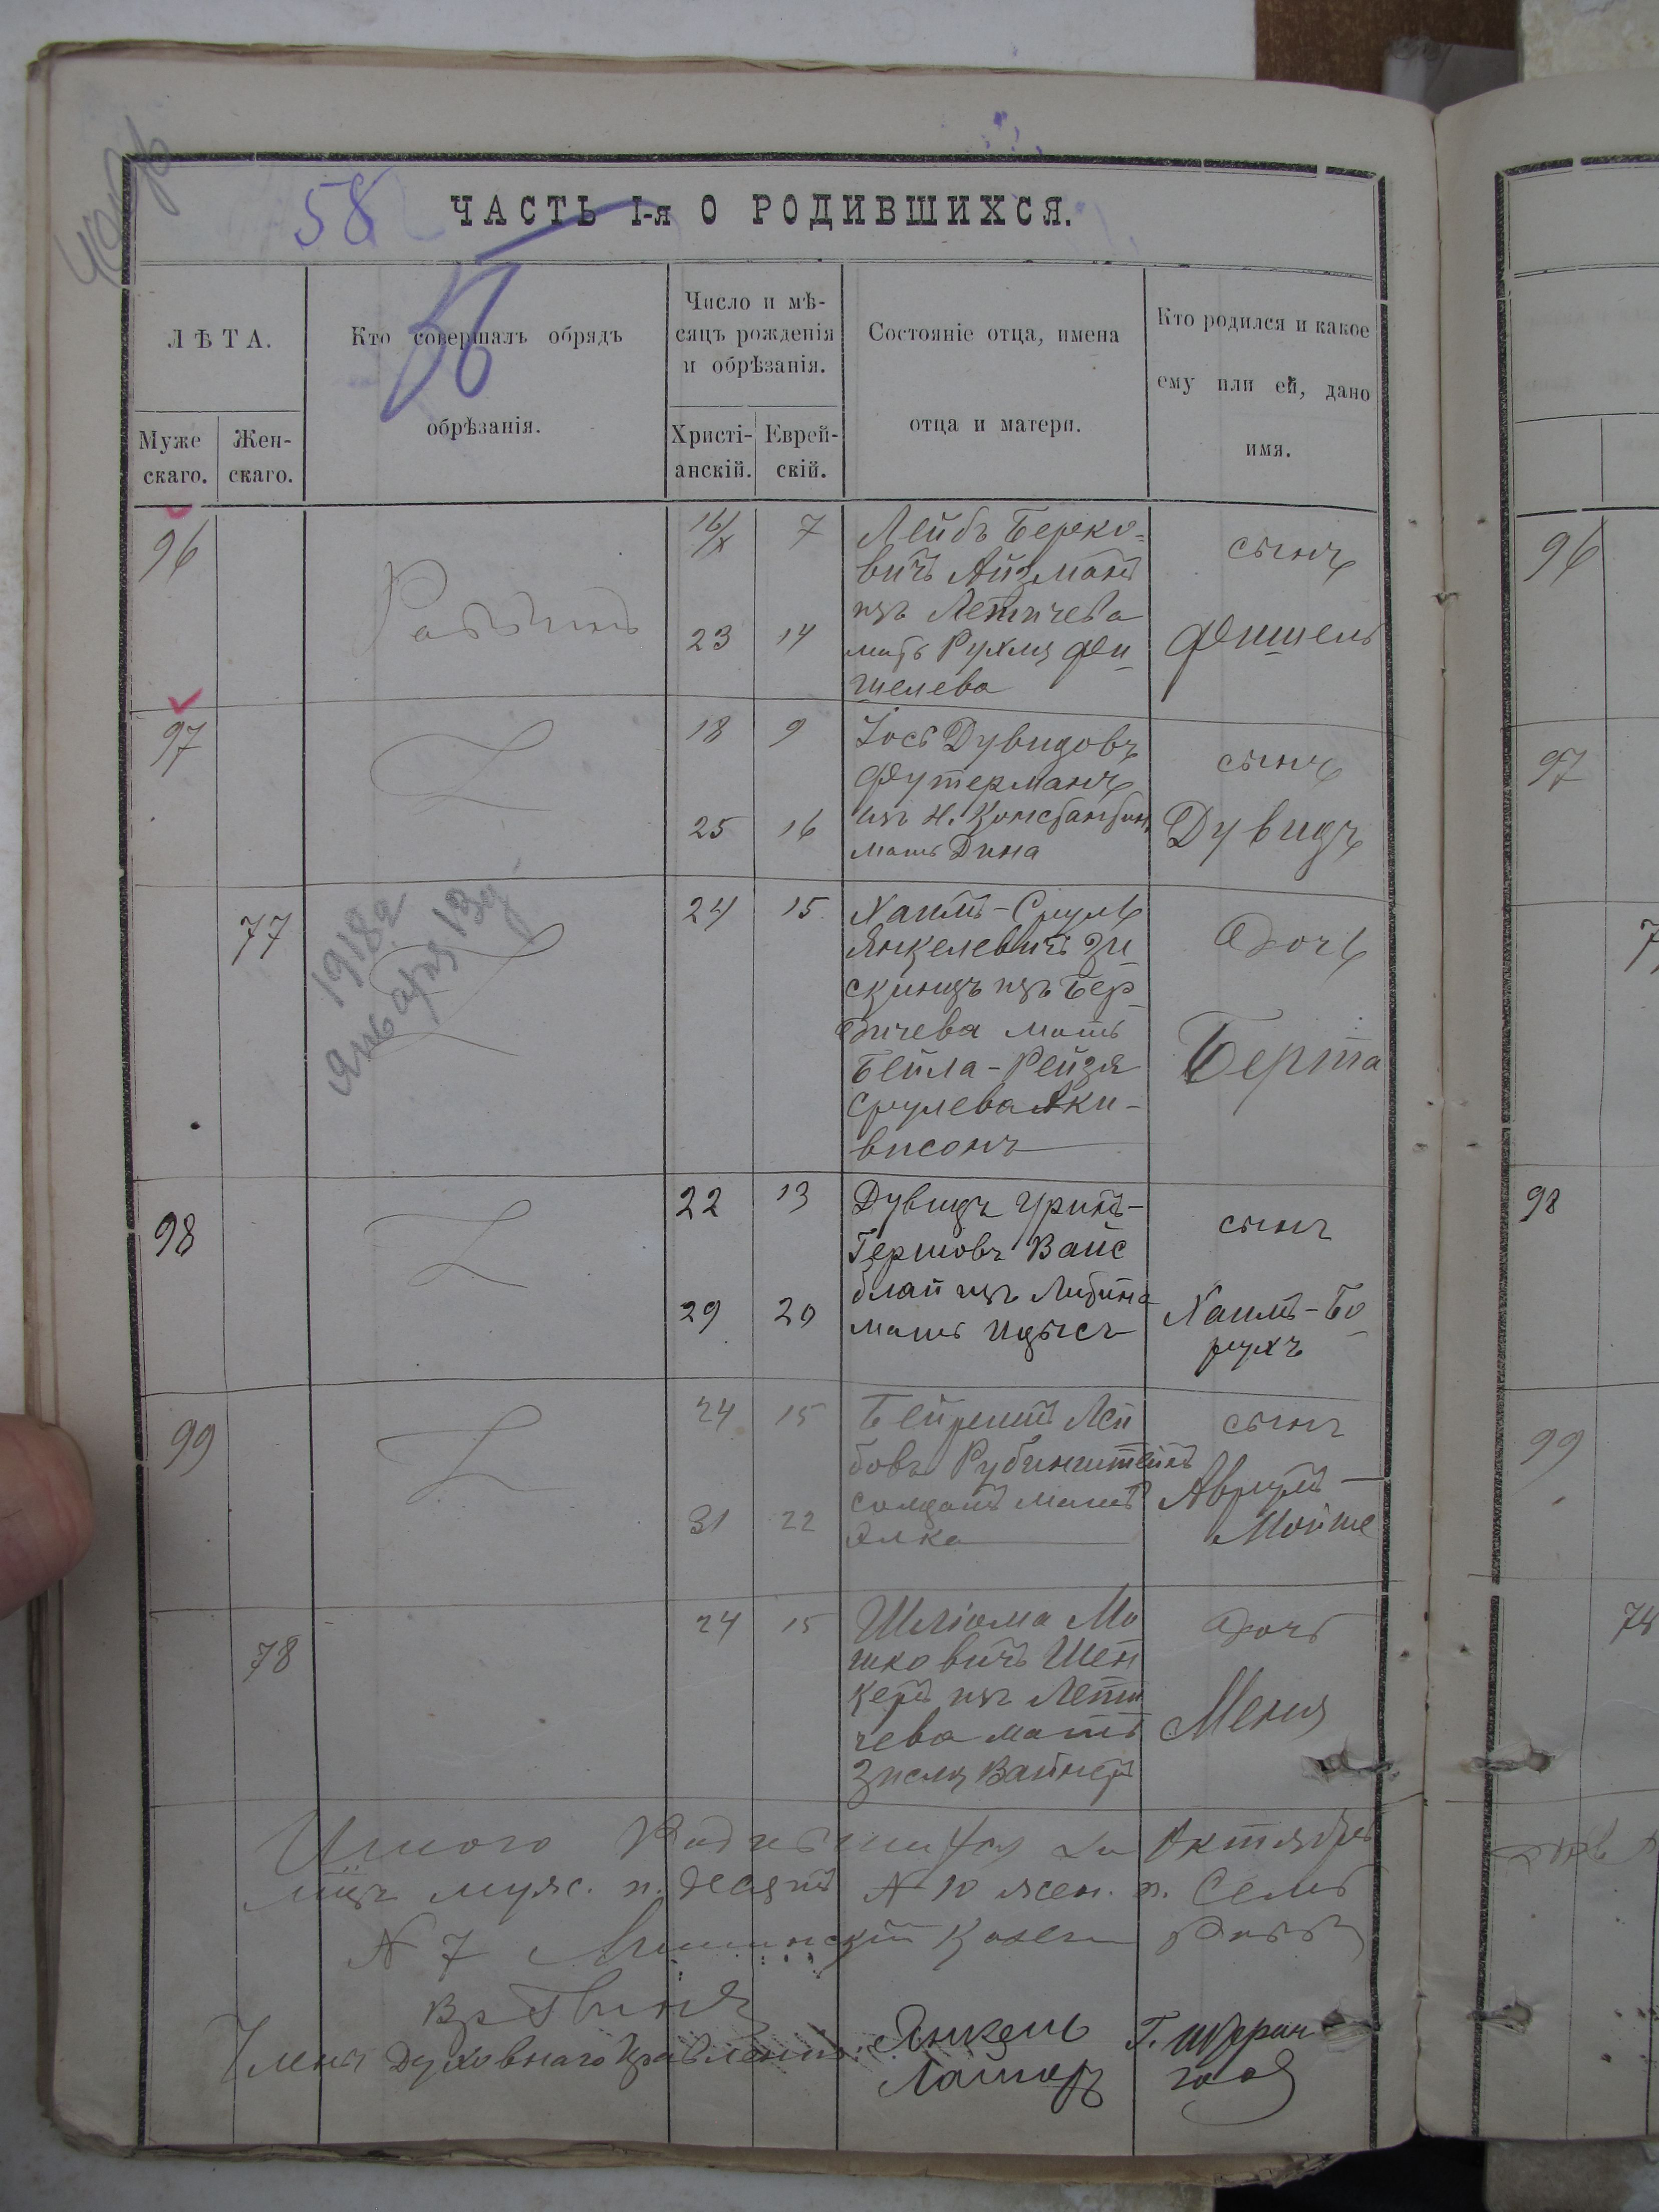 58
ЧАСТЬ I-я О РОДИВШИХСЯ.
ЛѢТА.
Муже
скаго.
Жен-
скаго.
Кто совершалъ обрядъ
обрѣзанія.
Число и мѣ-
сяцъ рожденія
и обрѣзанія.
Христі-
анскій.
Еврей-
скій.
Состояніе отца, имена
отца и матери.
Кто родился и какое
ему или ей, дано
имя.
96
16/X 7
23 14
Лейбъ Берко-
вичъ Айзманъ
изъ Летичева
мать Рухля Фи-
шелева
сынъ
Фишель
96
97
18 9
25 16
Іось Дувидовъ
Футерманъ
изъ Н. Константин
мать Дина
сынъ
Дувидъ
97
77
1918г
Января 13д
24 15
Хаимъ-Сруль
Янкелевичъ Зи-
скиндъ изъ Бер-
дичева мать
Бейла-Рейзя
Срулева Аки-
висонъ
дочь
Берта
98
22 13
29 20
Дувидъ
Гершовъ Вайс
блай изъ
мать Идысъ
сынъ
Хаимъ-Бо-
рухъ
98
99
24 15
31 22
Бейришъ Лей
бовъ Рубинштейнъ
солдатъ мать
Элка
сынъ
Аврумъ-
Мойше
99
78
24 15
Шліома Мо
шковичъ Шен
керъ изъ Лети
чева мать
Зисля Вайнеръ
дочь
Меня
78
Итого Родившихся за Октябрь
мцъ муж. п. десять № 10 жен. п. Семь
№ 7 Казен
Членъ Духовнаго Правленія Янкель